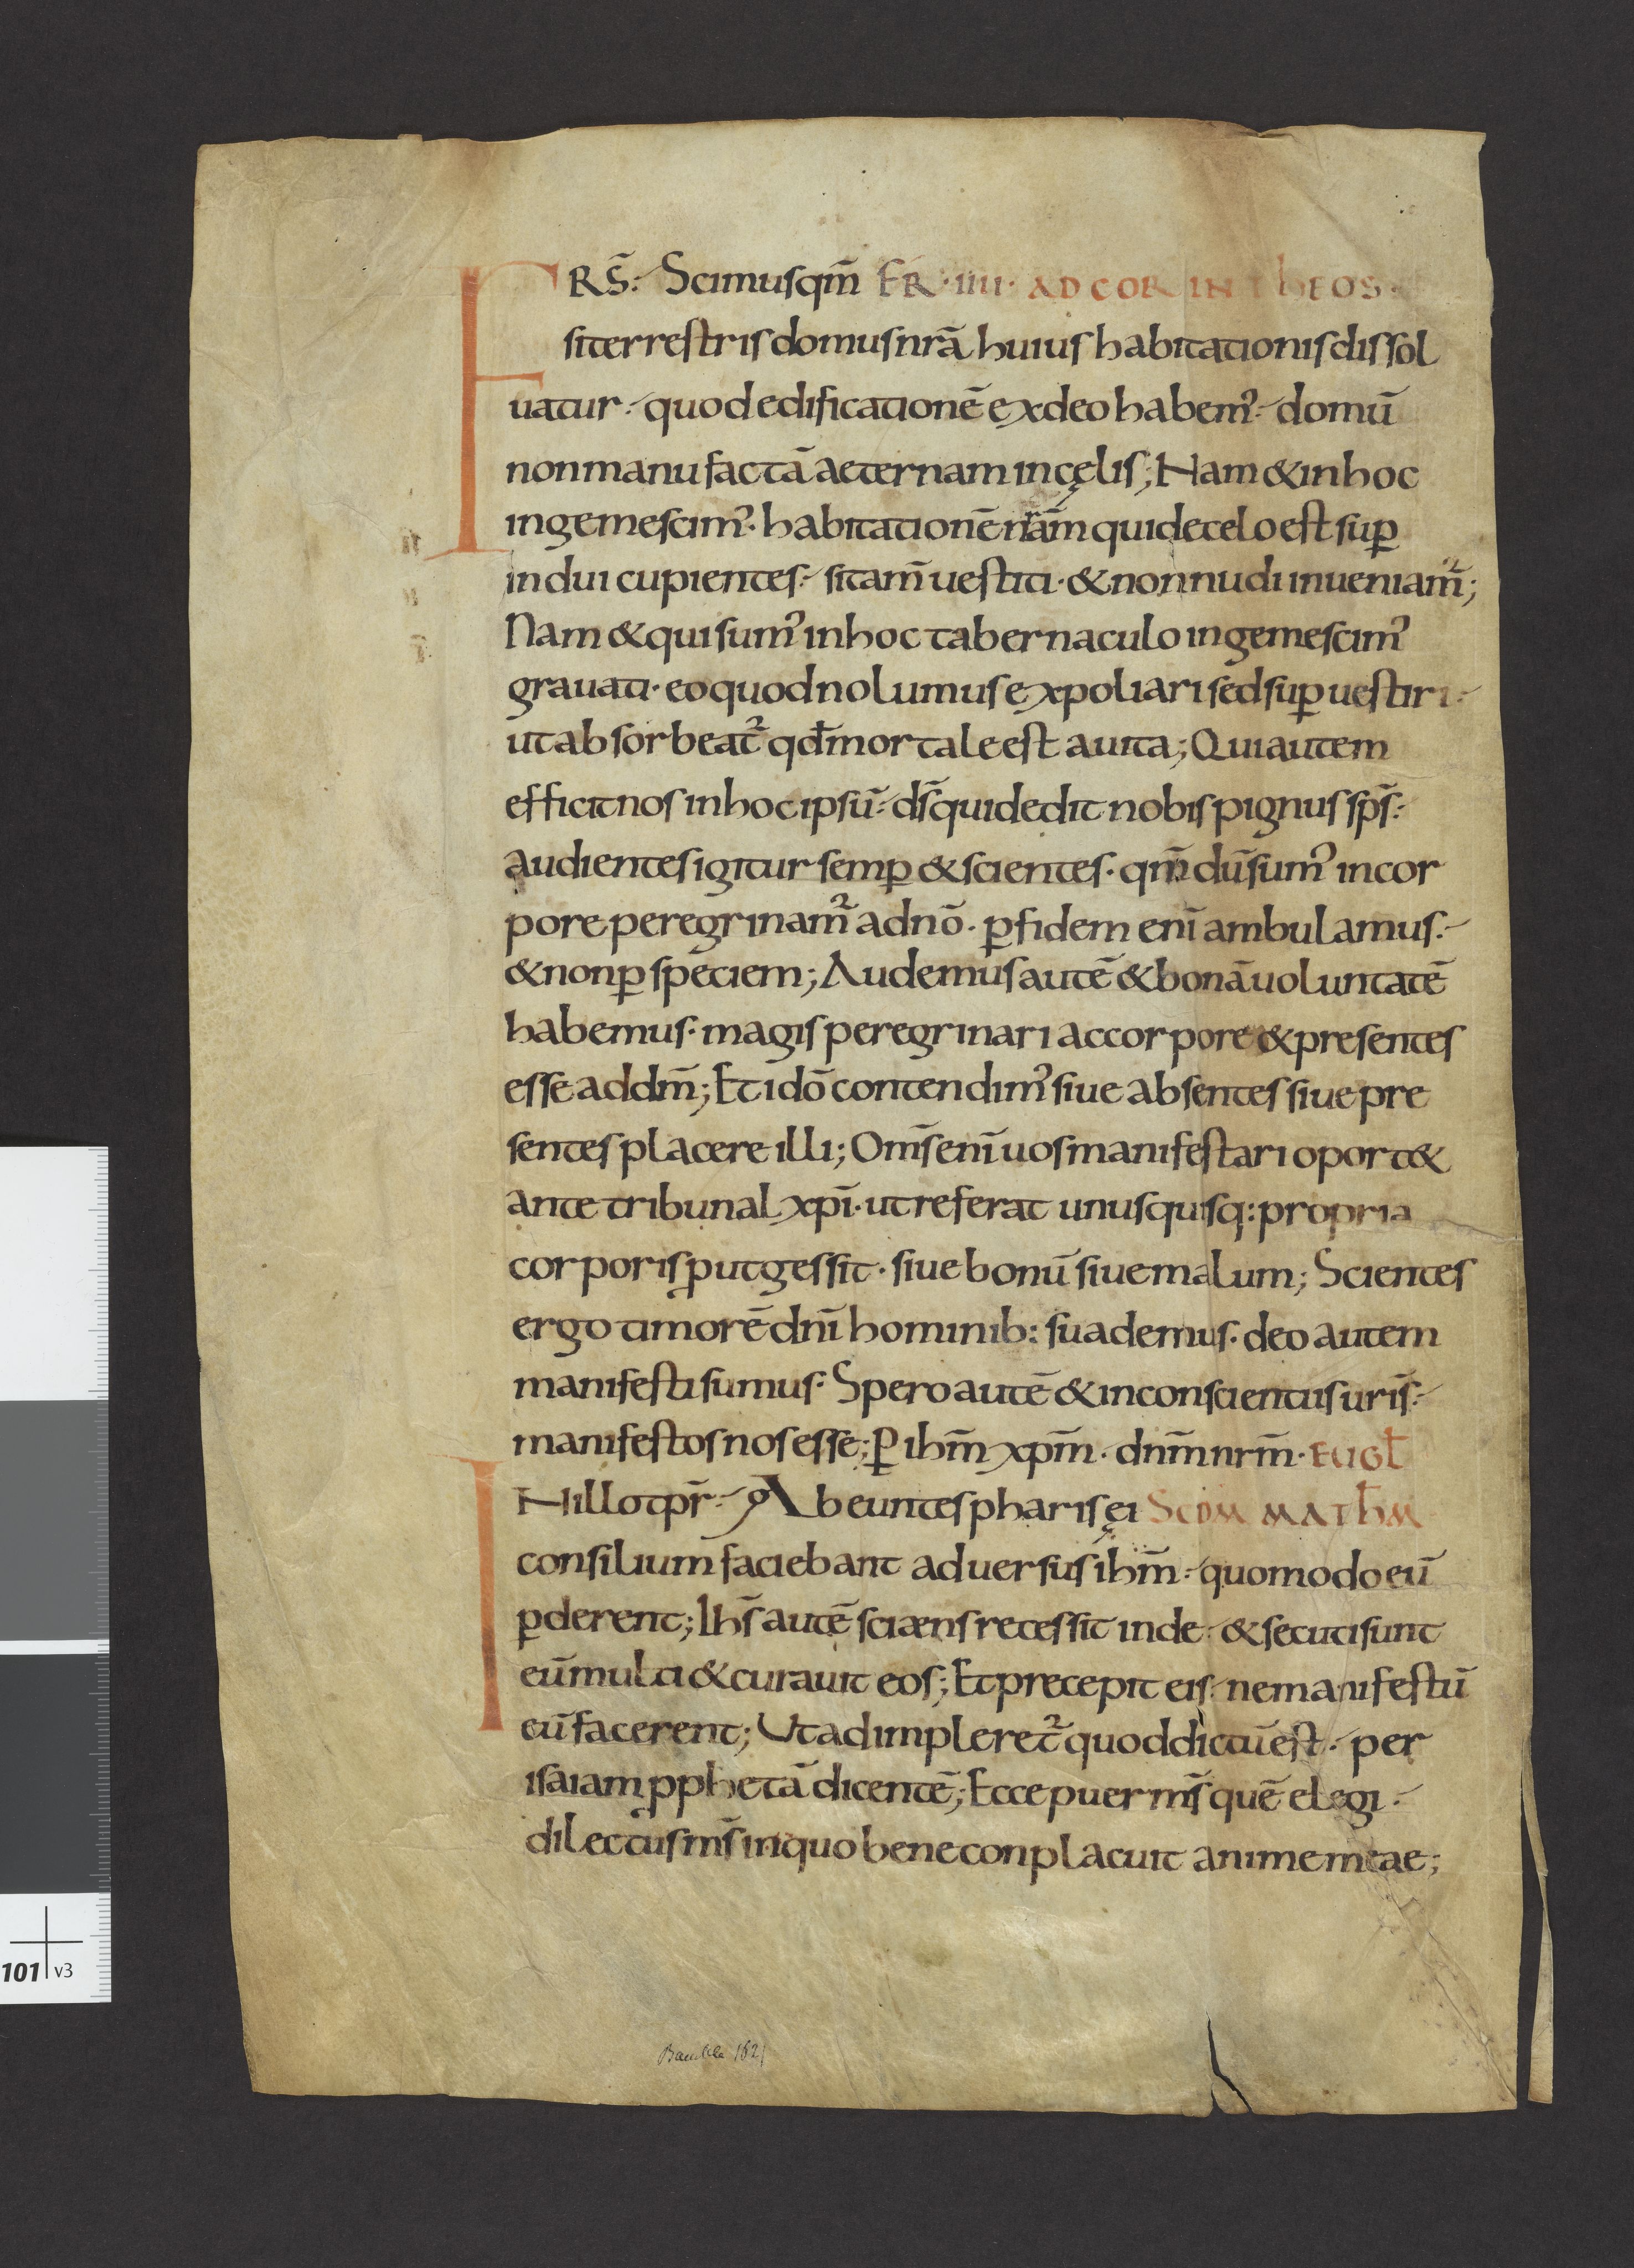 FRS̄. Scimus qm̄ FR · IIII · AD CORINTHEOS ·
si terrestris domus nrā huius habitationis dissol
uatur · quod edificationē ex deo habem' · domū
non manu factā aeternam in cęlis; Nam & in hoc
ingemescim' · habitationē nr̄am qui de celo est sup̄
indui cupientes · si tam̄ uestiti · & non nudi inueniam̄;
Nam & qui sum' in hoc tabernaculo ingemescim'
grauati · eo quod nolumus expoliari sed sup̄ uestiri ·
ut absorbeat᷑ qd̄ mortale est a uita; Qui autem
efficit nos in hoc ipsū · ds̄ qui dedit nobis pignus sps̄ ·
audientes igitur semp̄ & scientes · qm̄ dū sum' in cor
pore peregrinam᷑ a dnō · p̄ fidem enī ambulamus ·
& non p̄ speciem; Audemus autē & bonā uoluntatē
habemus · magis peregrinari a corpore & presentes
esse ad dm̄; Et idō contendim' siue absentes siue pre
sentes placere illi; Om̄s enī uos manifestari oport&
ante tribunal xpī · ut referat unusquisq: propria
corporis ꝓut gessit · siue bonū siue malum; Scientes
ergo timorē dnī hominib: suademus · deo autem
manifesti sumus · Spero autē & in conscientiis uris̄ ·
manifestos nos esse; P̄ ihm̄ xpm̄ · dnm̄ nrm̄ · EUGL̄
IN illo tpr̄ · Abeuntes pharisęi SCDM MATHM
consilium faciebant aduersus ihm̄ · quomodo eū
p̄derent; Ihs̄ autē sciens recessit inde · & secuti sunt
eū multi & curauit eos; Et precepit eis · ne manifestū
eū facerent; Ut adimpleret᷑ quod dictū est · per
isaiam ꝓphetā dicentē; Ecce puer ms̄ quē elegi ·
dilectus ms̄ in quo bene conplacuit anime meae;